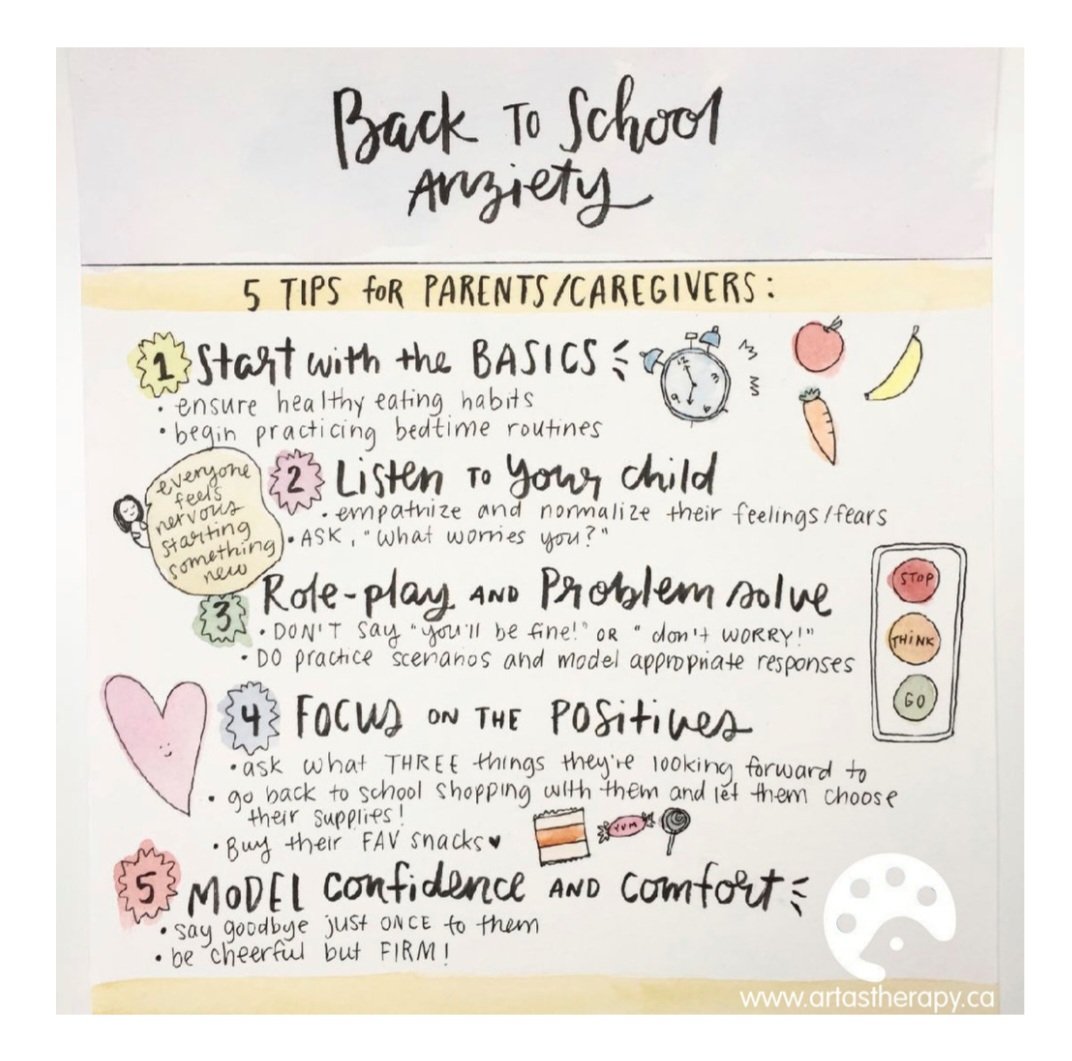 Back To School
Anxiety
5 TIPS for PARENTS/CAREGIVERS:
1 Start with the BASICS
• ensure healthy eating habits
• begin practicing bedtime routines
everyone
feels
nervous
starting
something
new
2 Listen To Your child
• empathize and normalize their feelings/fears
• ASK, "What worries you?"
3 Role-play AND Problem solve
• DON'T say "you'll be fine!" OR "don't WORRY!"
• DO practice scenarios and model appropriate responses
STOP
THINK
GO
4 FOCUS ON THE POSitives
• ask what THREE things they're looking forward to
• go back to school shopping with them and let them choose
their supplies!
• Buy their FAV snacks ♥
YUM
5 MODEL confidence AND comfort
• say goodbye just ONCE to them
• be cheerful but FIRM!
www.artastherapy.ca